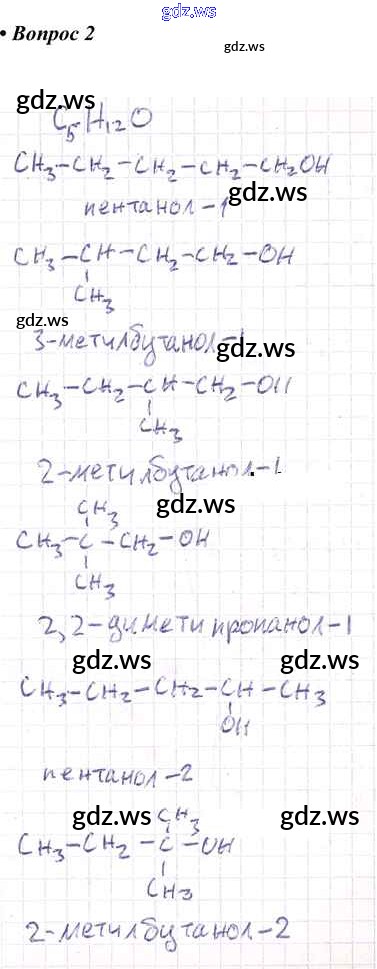 gdz.ws
• Вопрос 2
gdz.ws
gdz.ws
C₅H₁₂O
CH₃-CH₂-CH₂-CH₂-CH₂OH
gdz.ws
пентанол-1
CH₃-CH-CH₂-CH₂-OH
CH₃
gdz.ws
3-метилбутанол-1
gdz.ws
CH₃-CH₂-CH-CH₂-OH
CH₃
2-метилбутанол-1
CH₃
gdz.ws
CH₃-C-CH₂-OH
CH₃
2,2-димети пропанол-1
gdz.ws gdz.ws
CH₃-CH₂-CH₂-CH-CH₃
OH
пентанол-2
gdz.ws CH₃ gdz.ws
CH₃-CH₂-C-OH
CH₃
2-метилбутанол-2